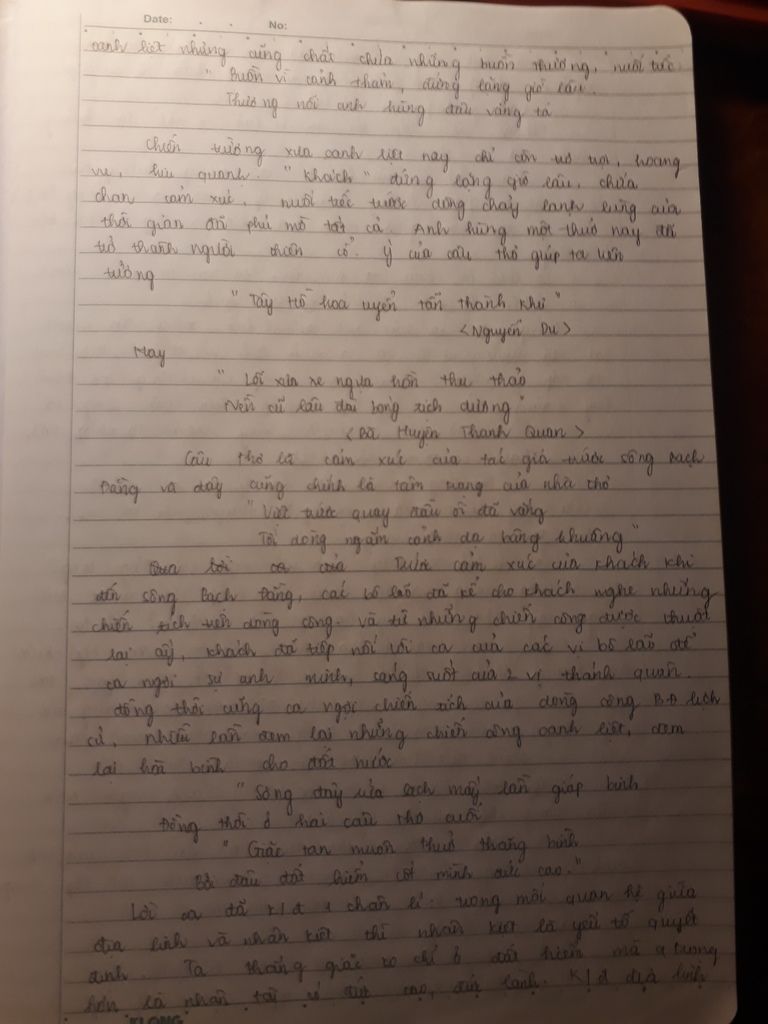 Date: . . No:
oanh liệt nhưng cũng chất chứa những buồn thương, nuối tiếc
" Buồn vì cảnh thảm, đứng lặng giờ lâu.
Thương nỗi anh hùng đâu vắng tá
Chiến trường xưa oanh liệt nay chỉ còn trơ trọi, hoang
vu, hiu quạnh. " Khách " đứng lặng giờ lâu, chứa
chan cảm xúc, nuối tiếc trước dòng chảy lạnh lùng của
thời gian đã phủ mờ tất cả. Anh hùng một thuở nay đã
trở thành người thiên cổ. Ý của câu thơ giúp ta liên
tưởng
" Tây Hồ hoa uyển tẫn thành khư "
< Nguyễn Du >
Hay
" Lối xưa xe ngựa hồn thu thảo
Nền cũ lâu đài bóng tịch dương "
< Bà Huyện Thanh Quan >
Câu thơ là cảm xúc của tác giả trước sông Bạch
Đằng và đây cũng chính là tâm trạng của nhà thơ
" Vượt trước quay đầu ôi đã vắng
Tới dòng ngắm cảnh dạ bâng khuâng "
Trước cảm xúc của khách khi
đến sông Bạch Đằng, các bô lão đã kể cho khách nghe những
chiến tích trên dòng sông. và từ những chiến công được thuật
lại ấy, khách đã tiếp nối lời ca của các vị bô lão để
ca ngợi sự anh minh, sáng suốt của 2 vị thánh quân.
đồng thời cũng ca ngợi chiến tích của dòng sông BĐ lịch
sử, nhiều lần đem lại những chiến công oanh liệt, đem
lại hòa bình cho đất nước
" Sông đây rửa sạch mấy lần giáp binh
Đồng thời ở hai câu thơ cuối
" Giặc tan muôn thuở thăng bình
Bởi đâu đất hiểm cốt mình đức cao. "
Lời ca đã k/đ 1 chân lí: trong mối quan hệ giữa
địa linh và nhân kiệt thì nhân kiệt là yếu tố quyết
định. Ta thắng giặc ko chỉ ở đất hiểm mà q trọng
hơn là nhân tài có đức cao, đức lành. K/đ địa linh
KLONG